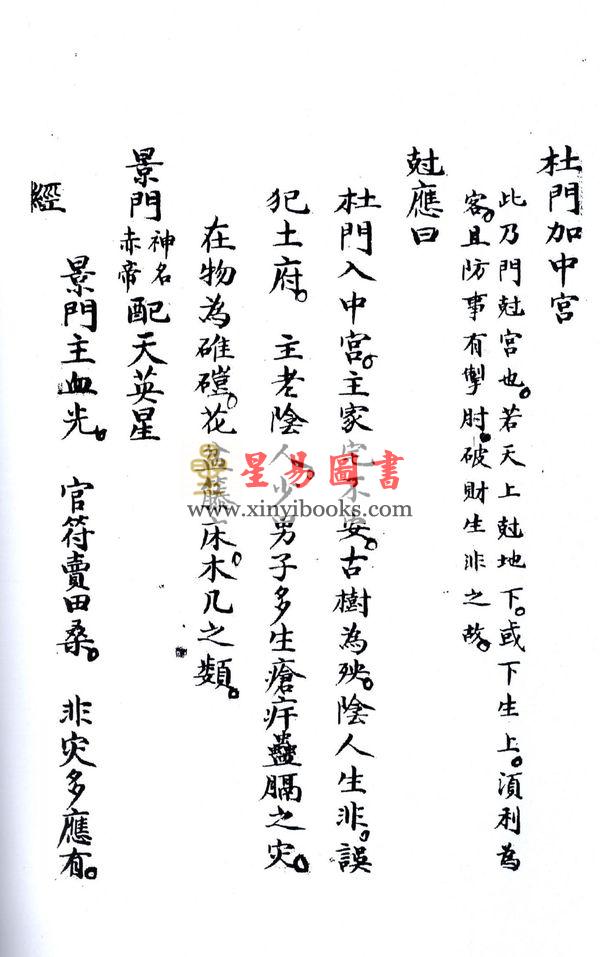 杜門加中宮
此乃門尅宮也。若天上尅地下。或下生上。須利為
客。且防事有掣肘。破財生非之故。
尅應曰
杜門入中宮。主家宅不安。古樹為殃。陰人生非。誤
犯土府。主老陰人少男子多生瘡疔蠱膈之灾。
在物為碓磑。花盆藤床木几之類。
景門神名赤帝配天英星
經
景門主血光。官符賣田桑。非灾多應有。
星易圖書
www.xinyibooks.com